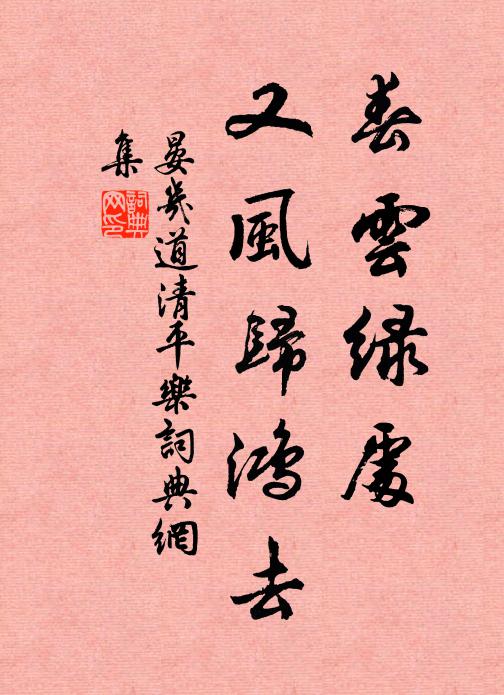 春雲綠處
又風歸鴻去
晏幾道清平樂詞典網
集
詞典
网印